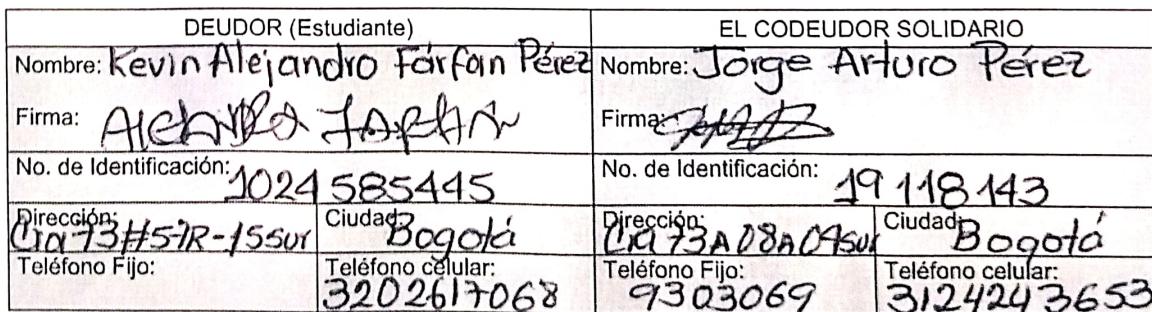 DEUDOR (Estudiante) EL CODEUDOR SOLIDARIO
Nombre: Kevin Alejandro Fárfan Pérez Nombre: Jorge Arturo Pérez
Firma: Alejandro Farfán Firma:
No. de Identificación: 1024 585445 No. de Identificación: 19 118 143
Dirección: Cra 73#57R-15sur Ciudad: Bogotá Dirección: Cra 73A 08A 04sur Ciudad: Bogotá
Teléfono Fijo: Teléfono celular: 3202617068 Teléfono Fijo: 9303069 Teléfono celular: 3124243653